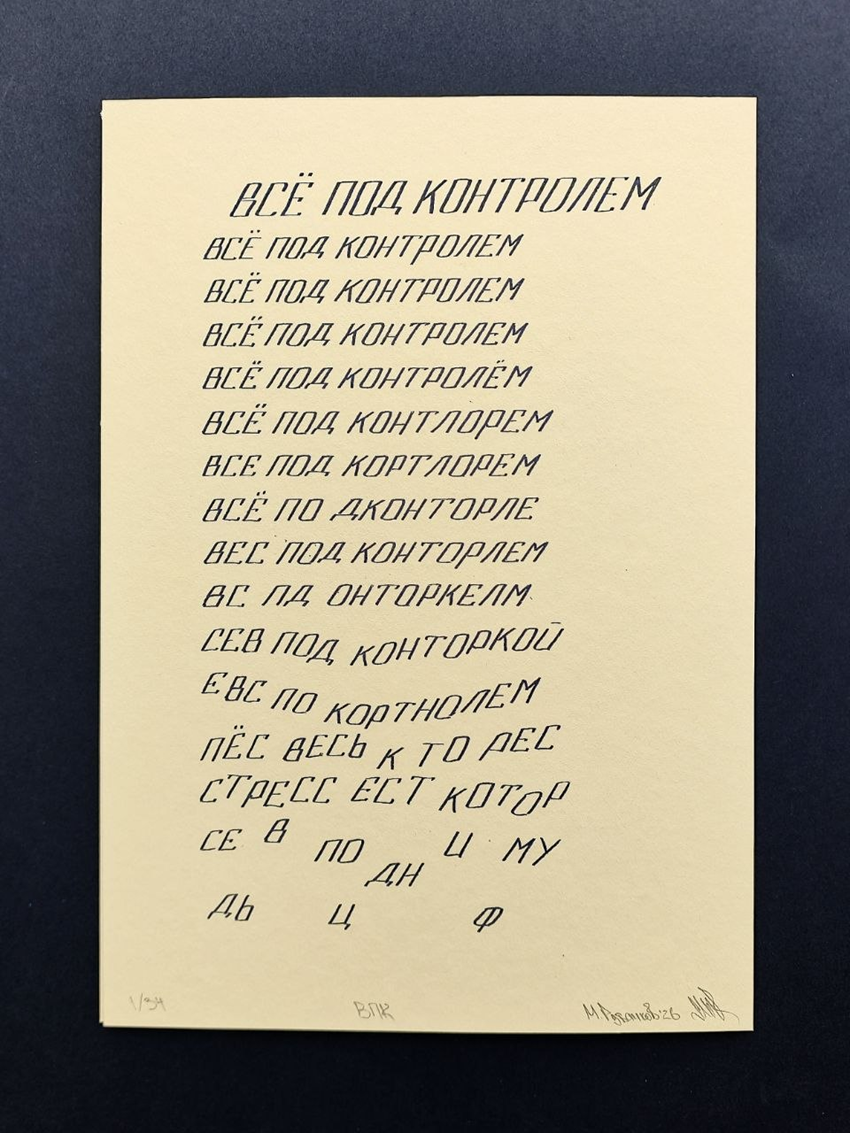 ВСЁ ПОД КОНТРОЛЕМ
ВСЁ ПОД КОНТРОЛЕМ
ВСЁ ПОД КОНТРОЛЕМ
ВСЁ ПОД КОНТРОЛЕМ
ВСЁ ПОД КОНТРОЛЁМ
ВСЁ ПОД КОНТЛОРЕМ
ВСЕ ПОД КОРТЛОРЕМ
ВСЁ ПО ДКОНТОРЛЕ
ВЕС ПОД КОНТОРЛЕМ
ВС ПД ОНТОРКЕЛМ
СЕВ ПОД КОНТОРКОЙ
ЕВС ПО КОРТНОЛЕМ
ПЁС ВЕСЬ К ТО РЕС
СТРЕСС ЕСТ КОТОР
СЕ В ПО ДН И МУ
ДЬ Ц Ф
1/34 ВПК М. '26